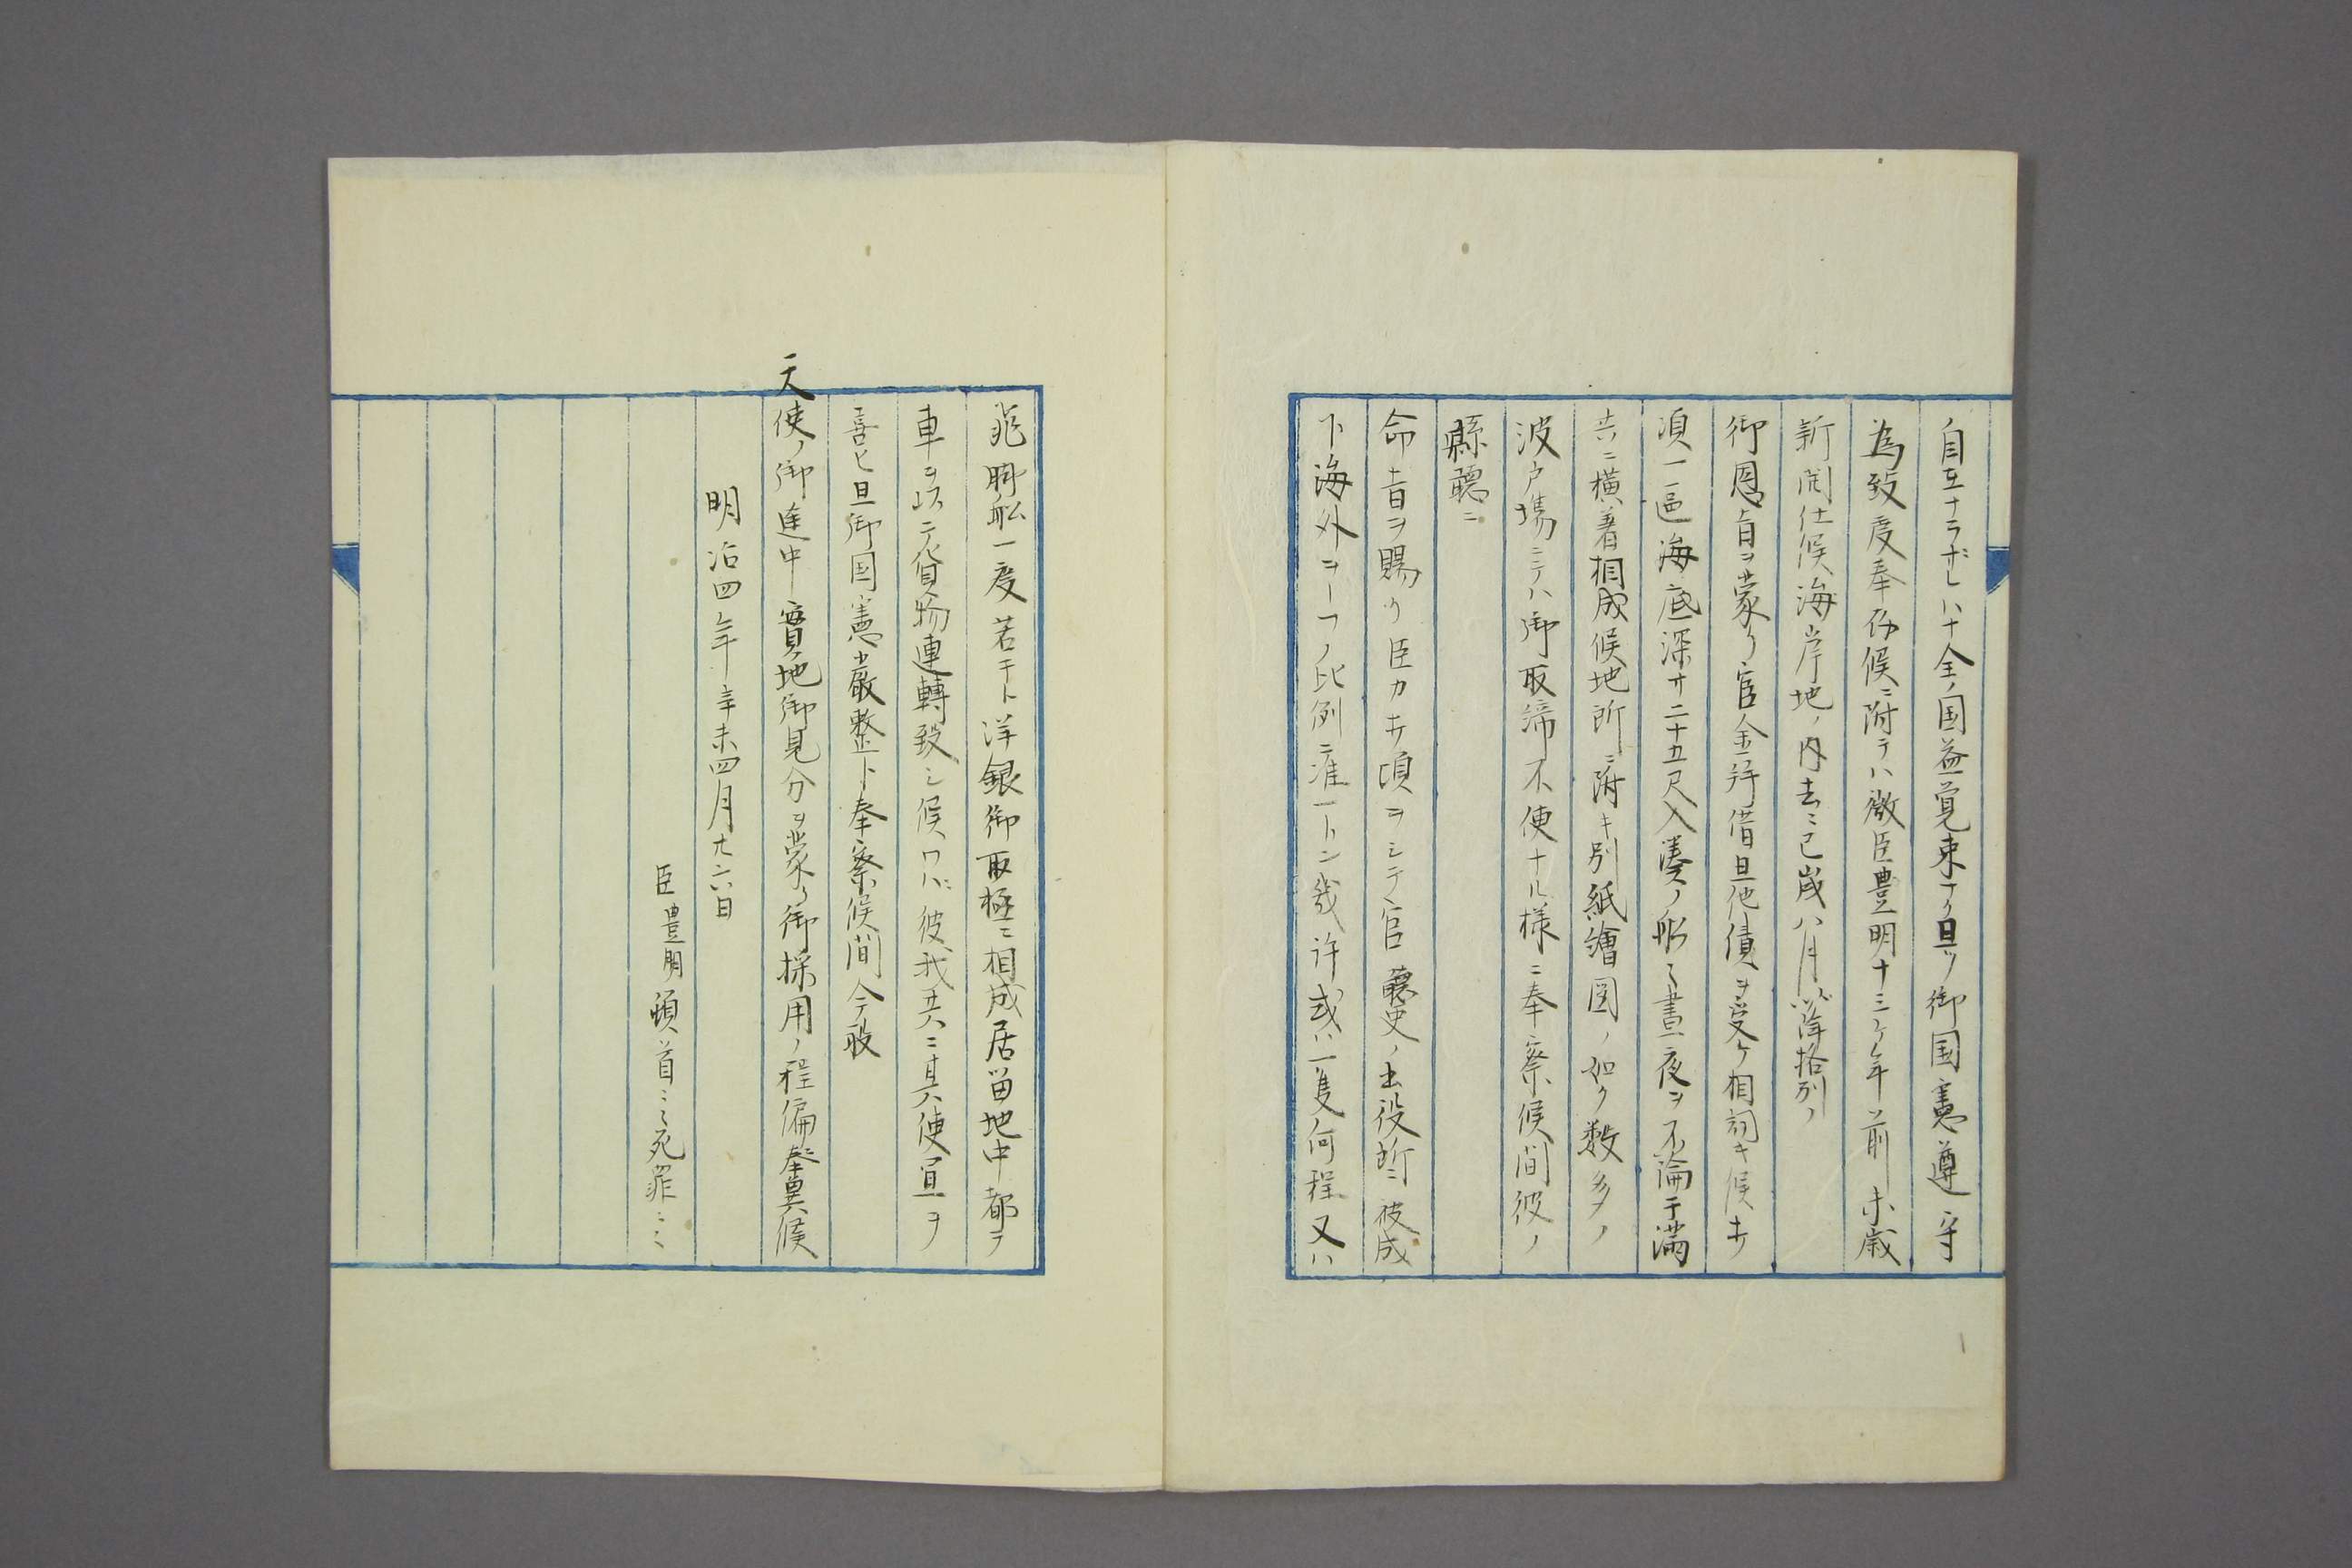 自在ナラザレハ十全ノ国益覚束ナク且ツ御国憲遵守
為致度奉存候ニ附テハ微臣豊明十三ケ年前未歳
新開仕候海岸地ノ内去ニ巳歳八月以降格別ノ
御恩旨ヲ蒙リ官金拝借且他債ヲ受ケ相詞キ候キ
項一區海底深サ二十五尺入湊ノ船々晝夜ヲ不論干満
共ニ横着相成候地所ニ附キ別紙繪図ノ如ク数多ノ
波戸場ニテハ御取締不便ナル様ニ奉察候間彼ノ
縣聴ニ
命旨ヲ賜リ臣カキ項ヲシテ官聴吏ノ出役所ニ被成
下海外ヨーフノ比例ニ准一トン幾許或ハ一隻何程又ハ
飛脚船一度若干ト洋銀御取極ニ相成居留地中都テ
車ヲ以ニテ貨物運轉致シ候ワハ彼我共ニ其便宜ヲ
喜ヒ且御国憲嚴整ト奉察候間今般
天使ノ御途中實地御見分ヲ蒙リ御採用ノ程偏奉冀候
明治四年辛未四月廿六日
臣豊明頓首ニ々死罪ニ々